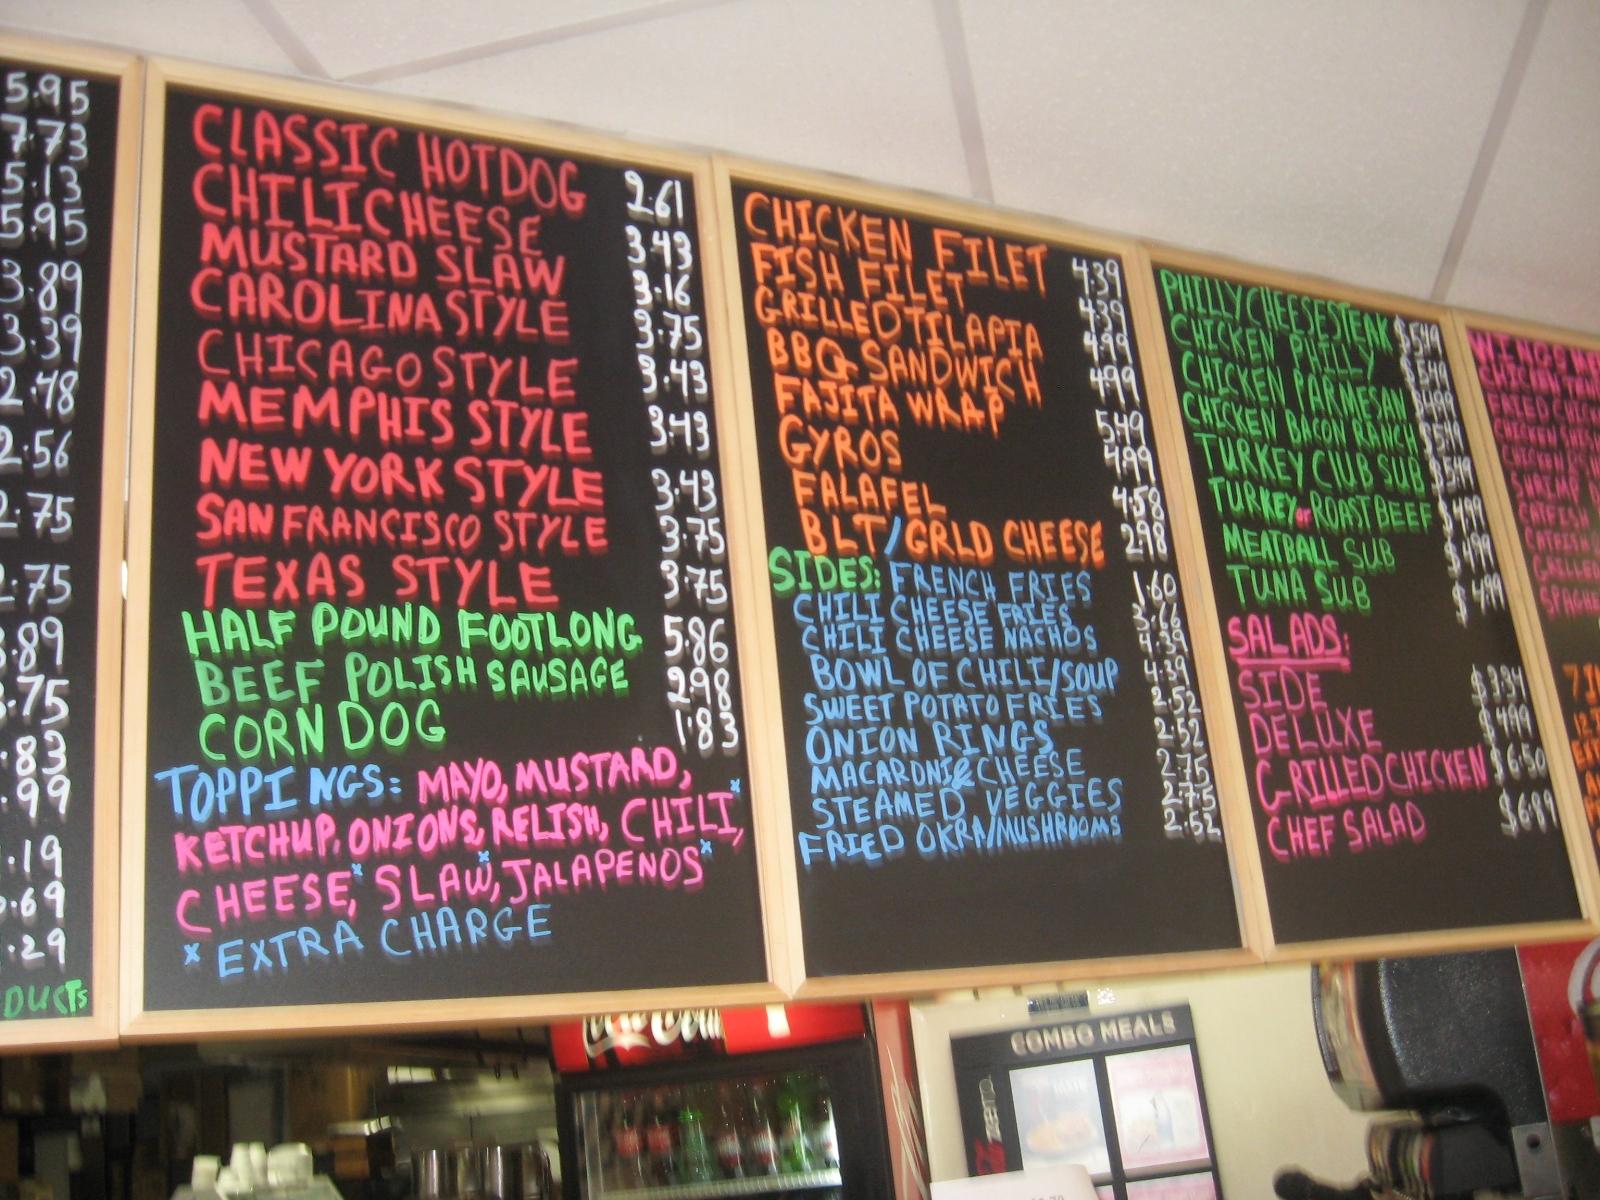 5.95
7.73
5.13
5.95
3.89
3.39
2.48
2.56
2.75
2.75
3.89
3.75
.83
.99
.19
.69
.29
DUCTS
CLASSIC HOTDOG 2.61
CHILICHEESE 3.43
MUSTARD SLAW 3.16
CAROLINA STYLE 3.75
CHICAGO STYLE 3.43
MEMPHIS STYLE 3.43
NEW YORK STYLE 3.43
SAN FRANCISCO STYLE 3.75
TEXAS STYLE 3.75
HALF POUND FOOTLONG 5.86
BEEF POLISH SAUSAGE 2.98
CORN DOG 1.83
TOPPINGS: MAYO, MUSTARD,
KETCHUP, ONIONS, RELISH, CHILI,*
CHEESE,* SLAW,* JALAPENOS*
* EXTRA CHARGE
CHICKEN FILET 4.39
FISH FILET 4.39
GRILLED TILAPIA 4.99
BBQ SANDWICH 4.99
FAJITA WRAP 5.49
GYROS 4.99
FALAFEL 4.58
BLT/GRLD CHEESE 2.98
SIDES: FRENCH FRIES 1.60
CHILI CHEESE FRIES 3.66
CHILI CHEESE NACHOS 4.39
BOWL OF CHILI/SOUP 4.39
SWEET POTATO FRIES 2.52
ONION RINGS 2.52
MACARONI & CHEESE 2.75
STEAMED VEGGIES 2.75
FRIED OKRA/MUSHROOMS 2.52
PHILLY CHEESESTEAK $5.49
CHICKEN PHILLY $5.49
CHICKEN PARMESAN $4.99
CHICKEN BACON RANCH $5.49
TURKEY CLUB SUB $5.49
TURKEY or ROAST BEEF $4.99
MEATBALL SUB $4.99
TUNA SUB $4.99
SALADS:
SIDE $3.34
DELUXE $4.99
GRILLED CHICKEN $6.50
CHEF SALAD $6.89
WINGS
SHRIMP
CATFISH
CATFISH
GRILLED
SPAGHE
Coca-Cola
COMBO MEALS